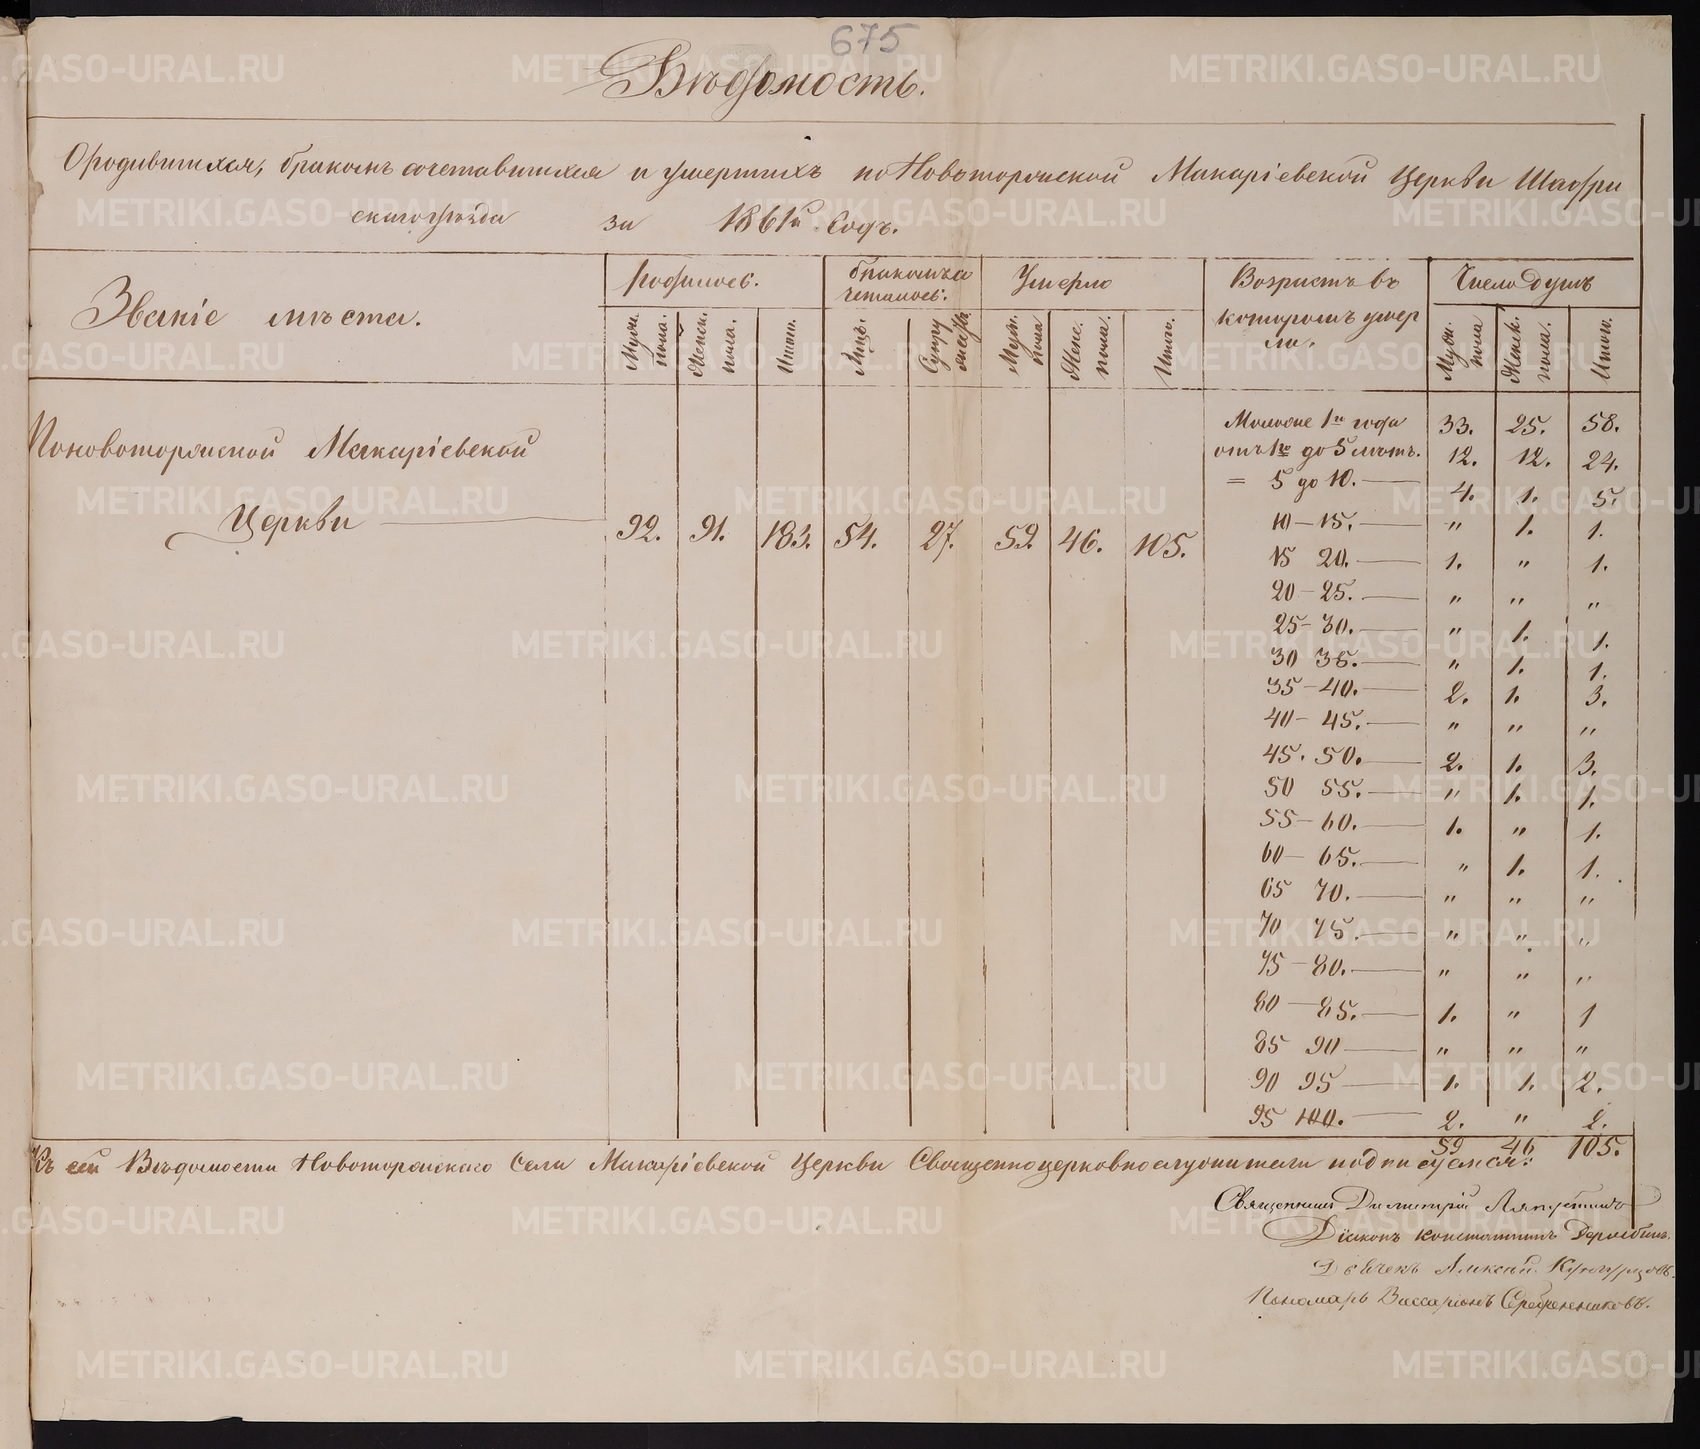 675
Вѣдомость.
О родившихся, бракомъ сочетавшихся и умершихъ по Новоторжской Макаріевской Церкви Шадри
скаго уѣзда за 1861й Годъ.
Званіе мѣста.
Родилось.
Бракомъ со
четалось.
Умерло
Возрастъ въ
которомъ умер
ли.
Число душъ
Муж. пола.
Женск. пола.
Итого.
Лицъ.
Супру
жествъ
Муж. пола
Женс. пола.
Итого.
Муж. пола
Женск. пола.
Итого.
По новоторжской Макаріевской
Церкви
92. 91. 183. 54. 27. 59. 46. 105.
Моложе 1го года 33. 25. 58.
отъ 1го до 5 лѣтъ. 12. 12. 24.
= 5 до 10. 4. 1. 5.
10 – 15. " 1. 1.
15 20. 1. " 1.
20 – 25. " " "
25 – 30. " 1. 1.
30 35. " 1. 1.
35 – 40. 2. 1. 3.
40 – 45. " " "
45. 50. 2. 1. 3.
50 55. " 1. 1.
55 – 60. 1. " 1.
60 – 65. " 1. 1.
65 70. " " "
70 75. " " "
75 – 80. " " "
80 – 85. 1. " 1
85 90 " " "
90 95 1. 1. 2.
95 100. 2. " 2.
59 46 105.
Къ сей Вѣдомости Новоторжскаго Села Макаріевской Церкви Священноцерковнослужители подписуемся:
Священникъ Димитрій
Діаконъ Константинъ
Дьячекъ Алексѣй
Пономарь Виссаріонъ Серебренниковъ.
METRIKI.GASO-URAL.RU